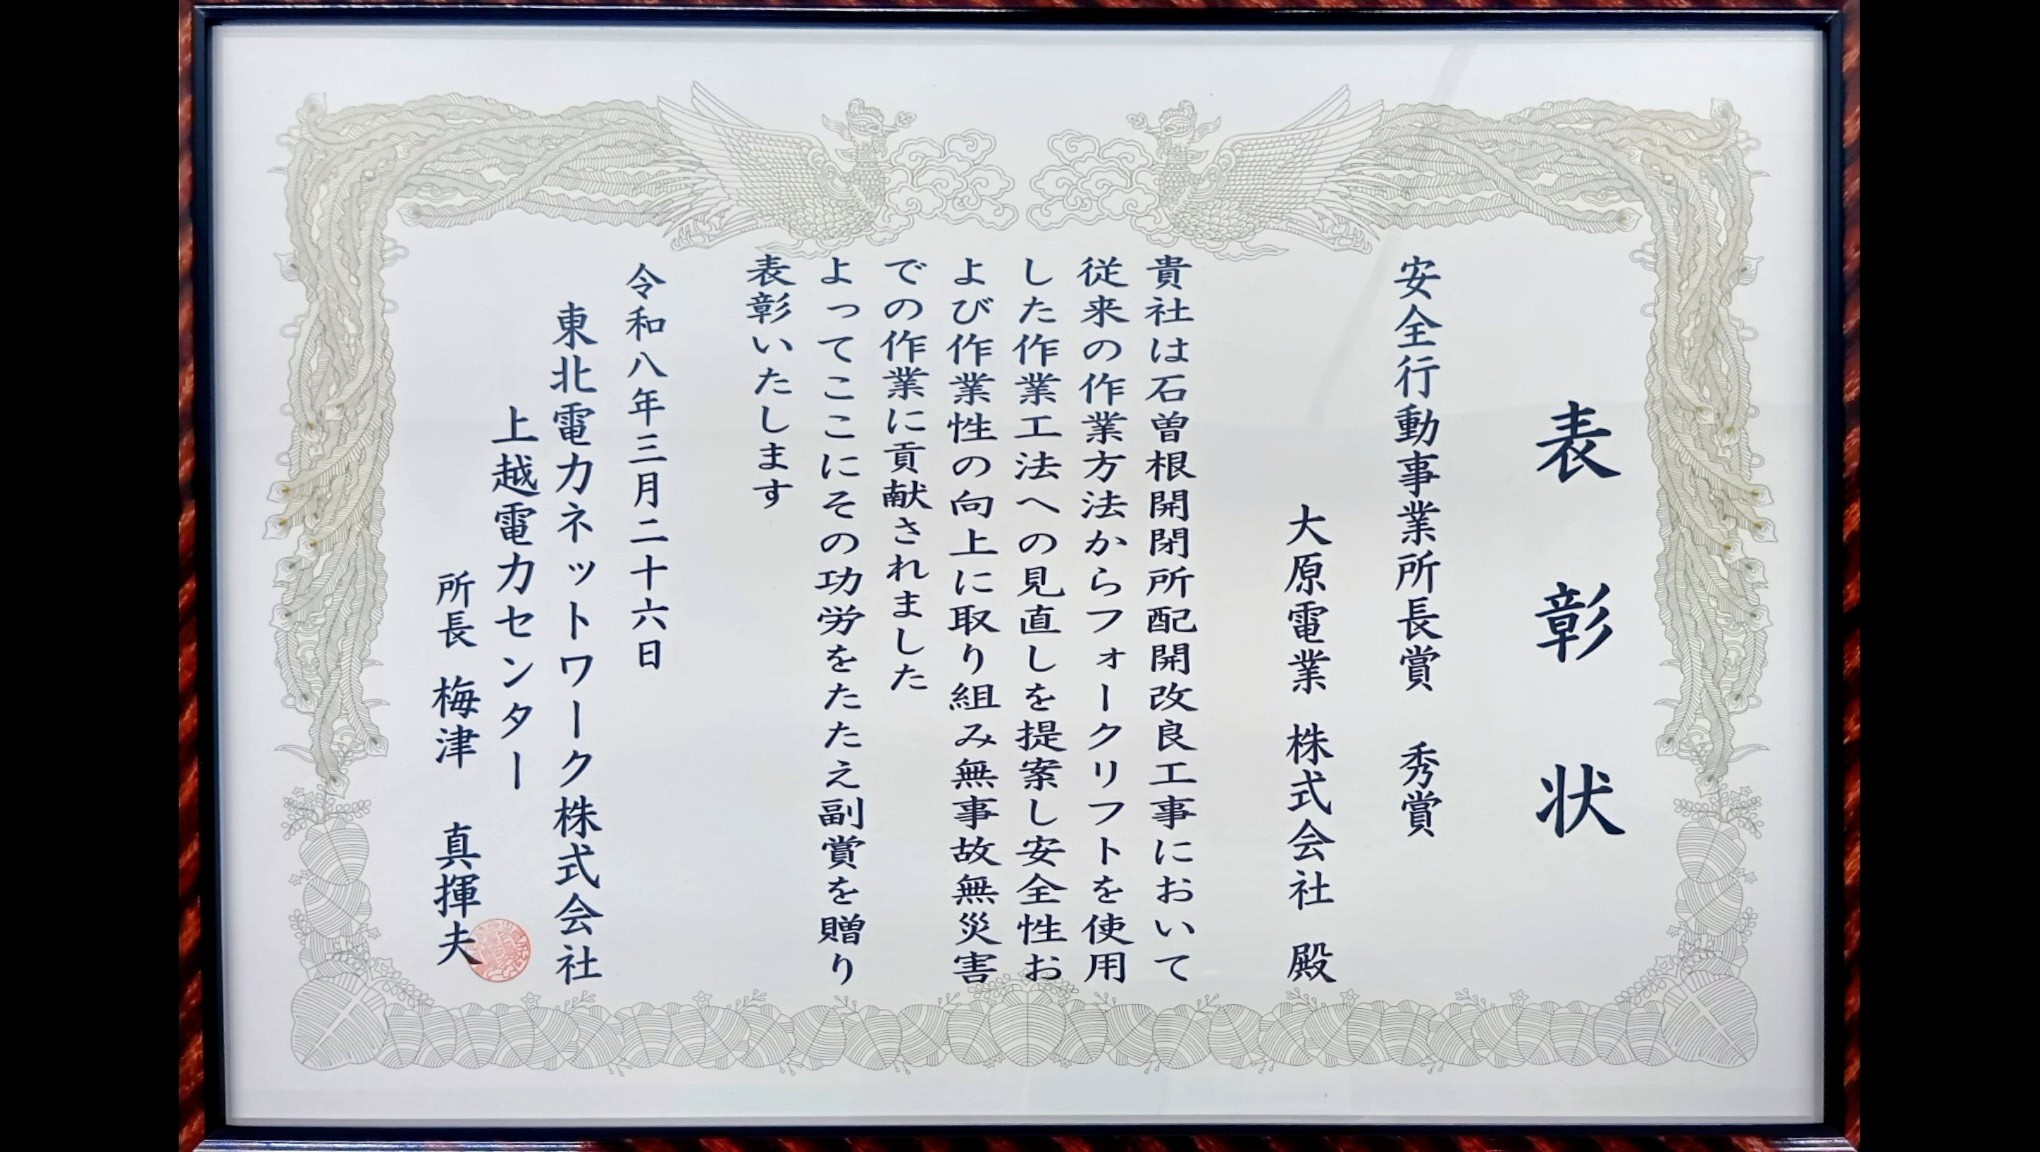 表彰状
安全行動事業所長賞 秀賞
大原電業 株式会社 殿
貴社は石曽根開閉所配開改良工事において
従来の作業方法からフォークリフトを使用
した作業工法への見直しを提案し安全性お
よび作業性の向上に取り組み無事故無災害
での作業に貢献されました
よってここにその功労をたたえ副賞を贈り
表彰いたします
令和八年三月二十六日
東北電力ネットワーク株式会社
上越電力センター
所長 梅津 真揮夫